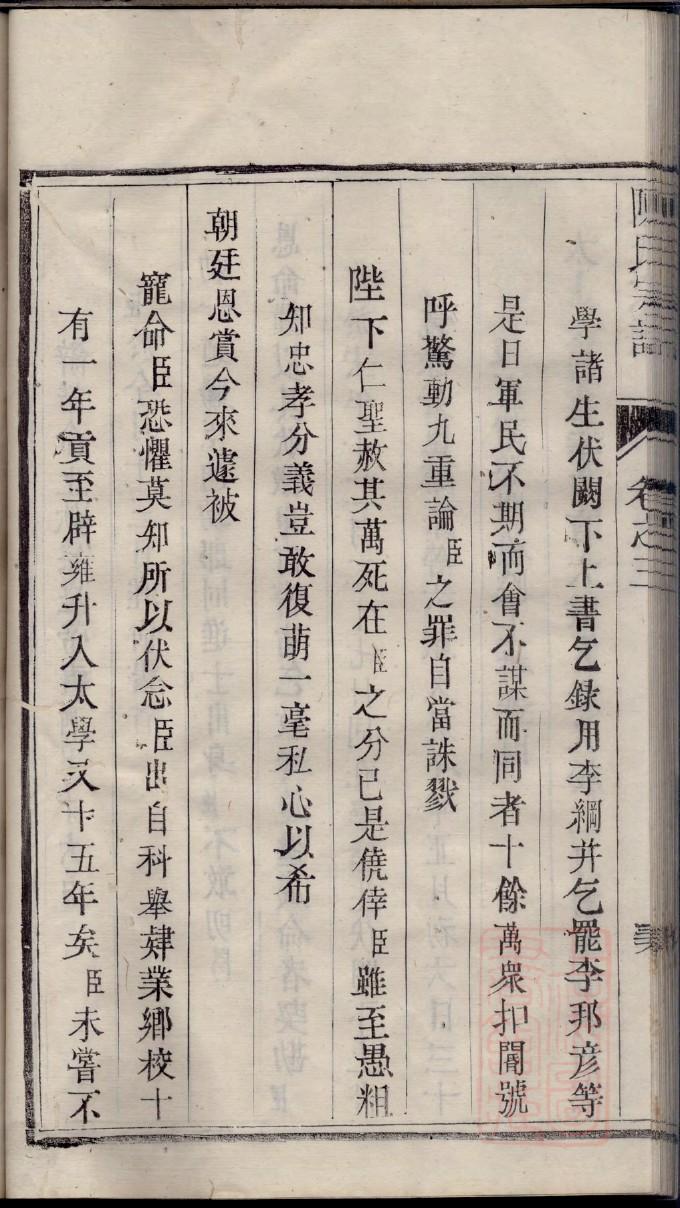 陳氏宗譜
卷之三
學諸生伏闕下上書乞録用李綱并乞罷李邦彦等
是日軍民不期而會不謀而同者十餘萬衆扣閽號
呼驚動九重論臣之罪自當誅戮
陛下仁聖赦其萬死在臣之分已是僥倖臣雖至愚粗
知忠孝分義豈敢復萌一毫私心以希
朝廷恩賞今來遽被
寵命臣恐懼莫知所以伏念臣出自科舉肄業鄉校十
有一年貢至辟雍升入太學又十五年矣臣未嘗不